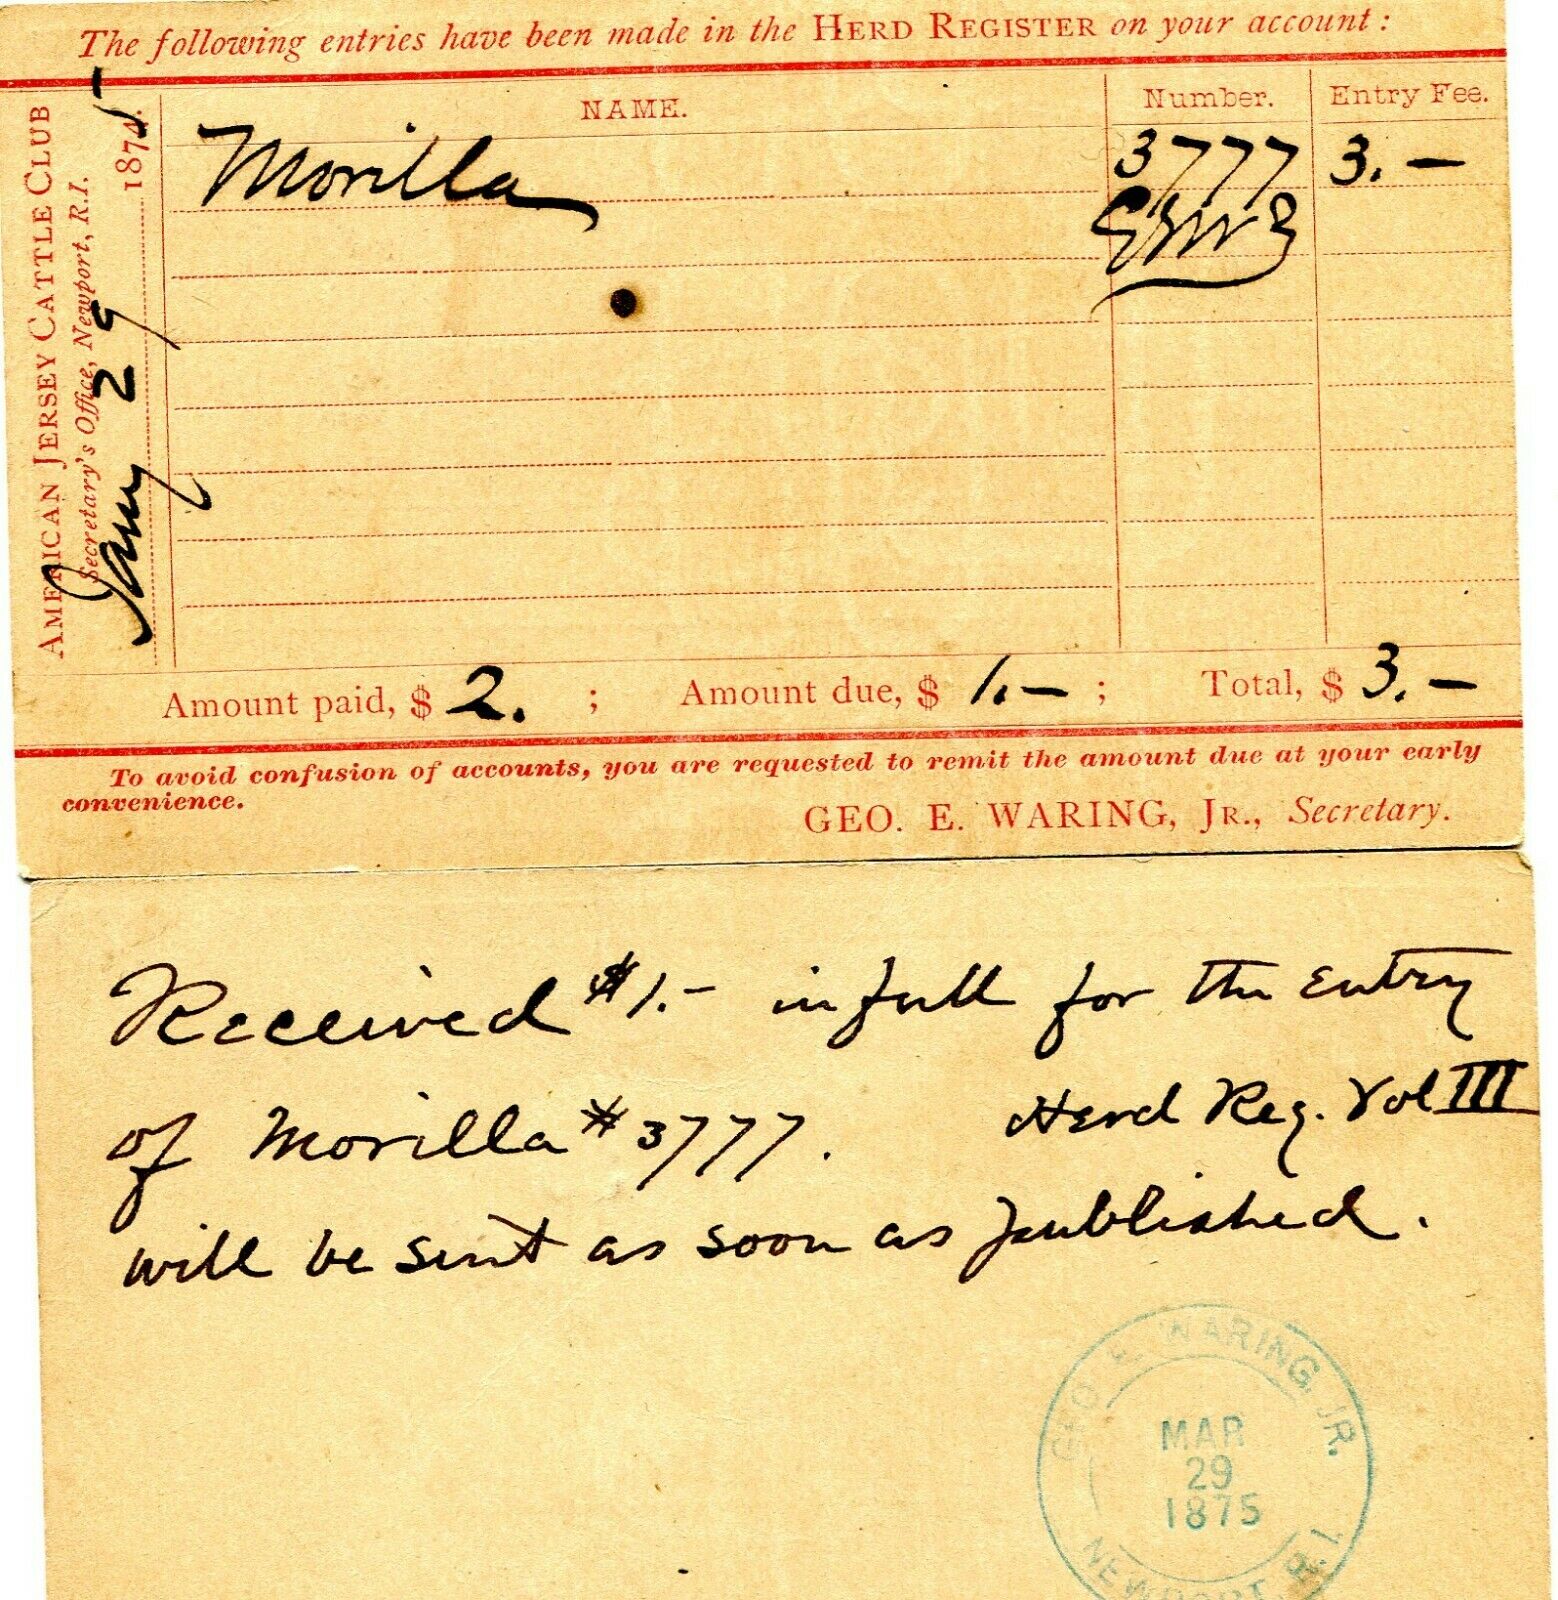 The following entries have been made in the HERD REGISTER on your account:
AMERICAN JERSEY CATTLE CLUB
Secretary's Office, Newport, R.I.
Jany 29 1875
NAME. Number. Entry Fee.
Morilla 3777 3.—
Amount paid, $ 2. ; Amount due, $ 1.— ; Total, $ 3.—
To avoid confusion of accounts, you are requested to remit the amount due at your early
convenience.
GEO. E. WARING, JR., Secretary.
Received $1.— in full for the entry
of Morilla # 3777. Herd Reg. Vol III
will be sent as soon as published.
GEO. E. WARING, JR.
MAR
29
1875
NEWPORT, R.I.